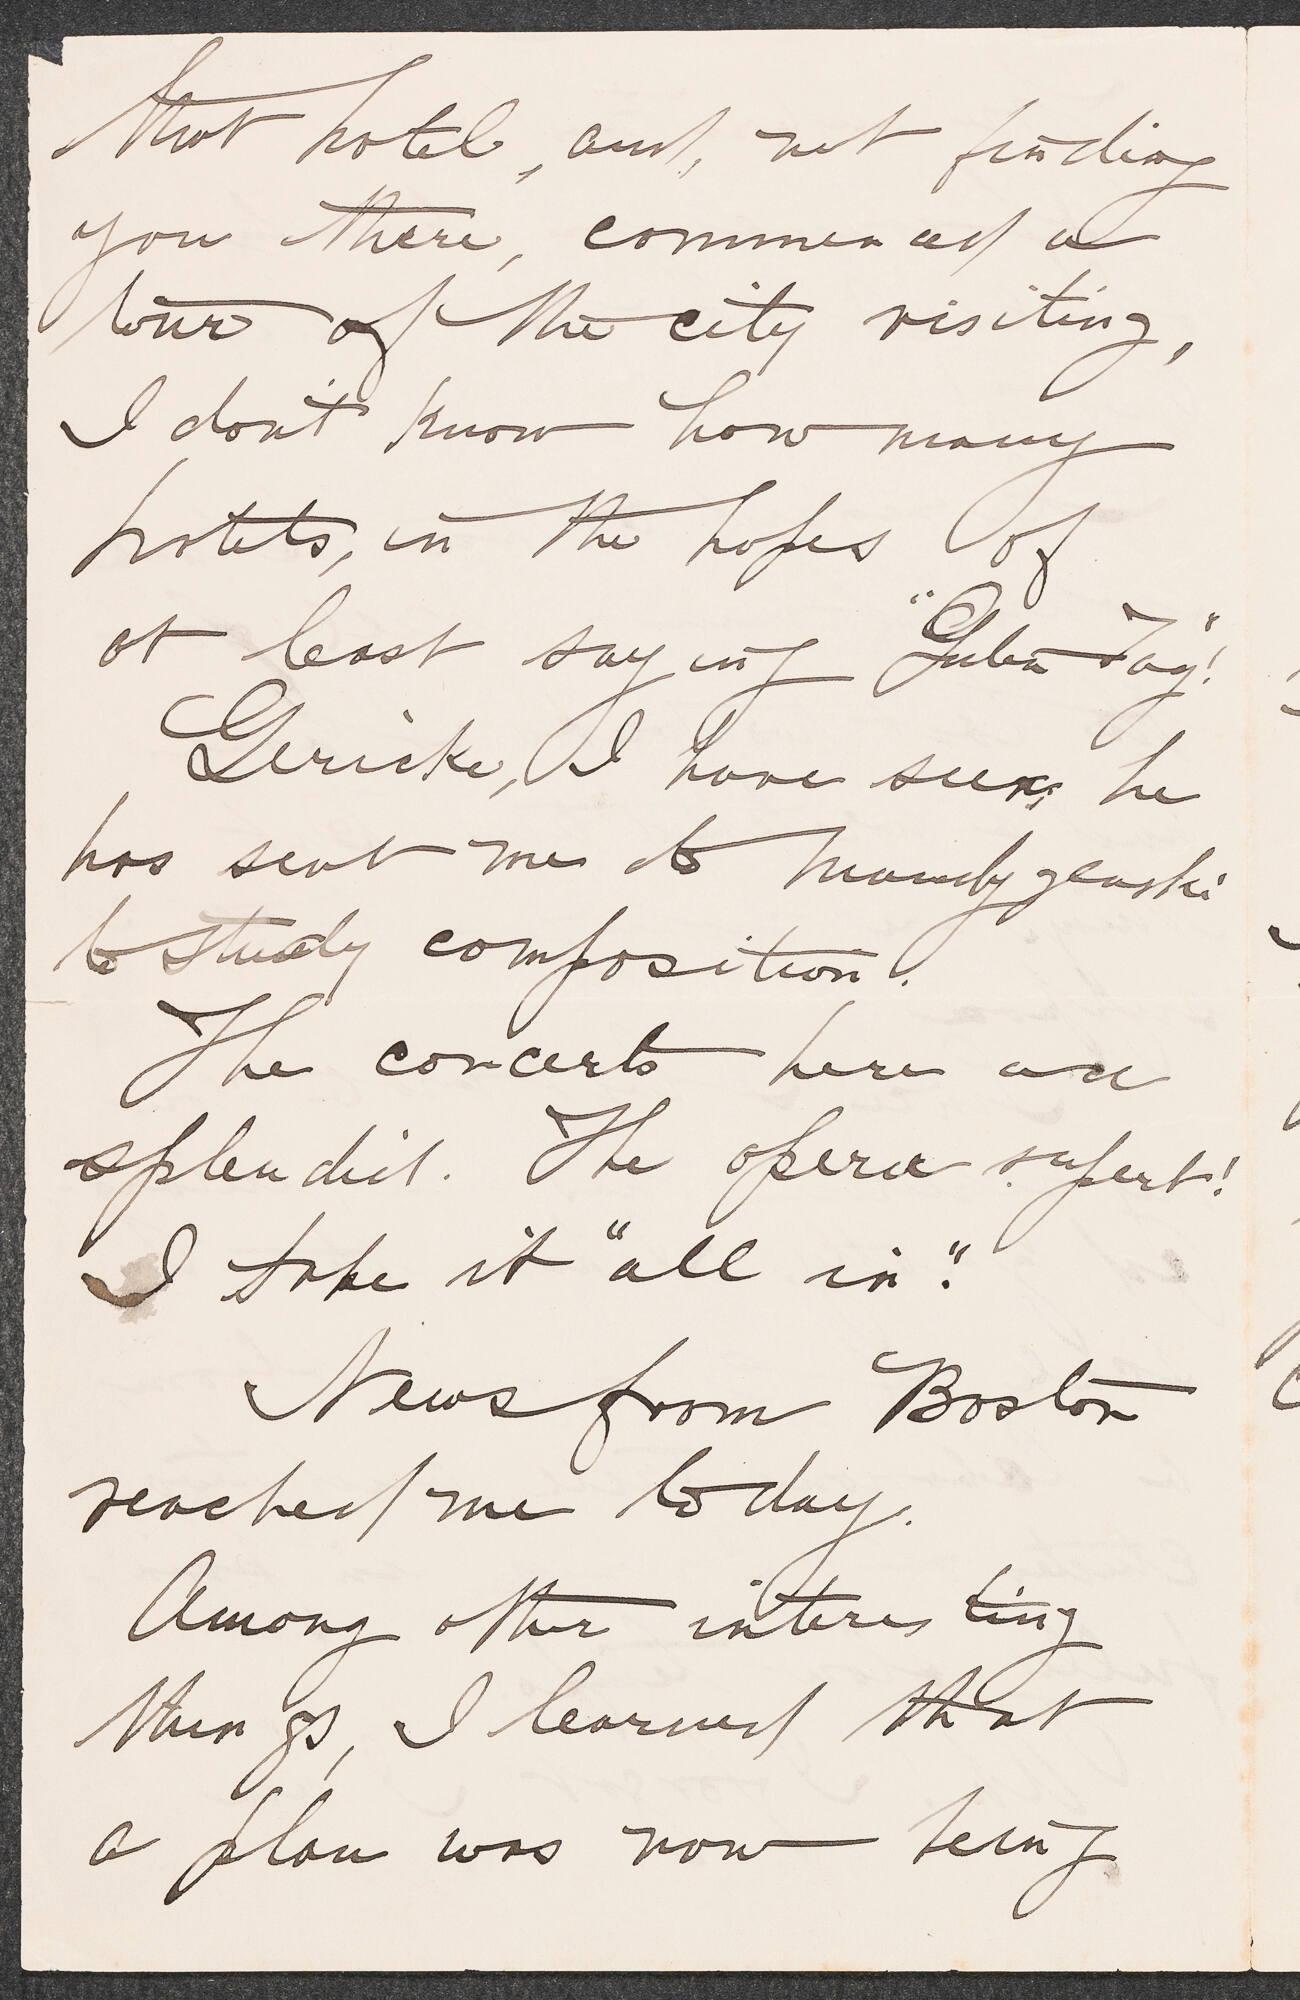 that hotel, and, not finding
you there, commenced a
tour of the city visiting,
I don't know how many
hotels, in the hopes of
at least saying "Guten Tag"!
Gericke, I have seen; he
has sent me to Mandyzenski
to study composition.
The concerts here are
splendid. The opera superb!
I take it "all in".
News from Boston
reached me today.
Among other interesting
things, I learned that
a plan was now being